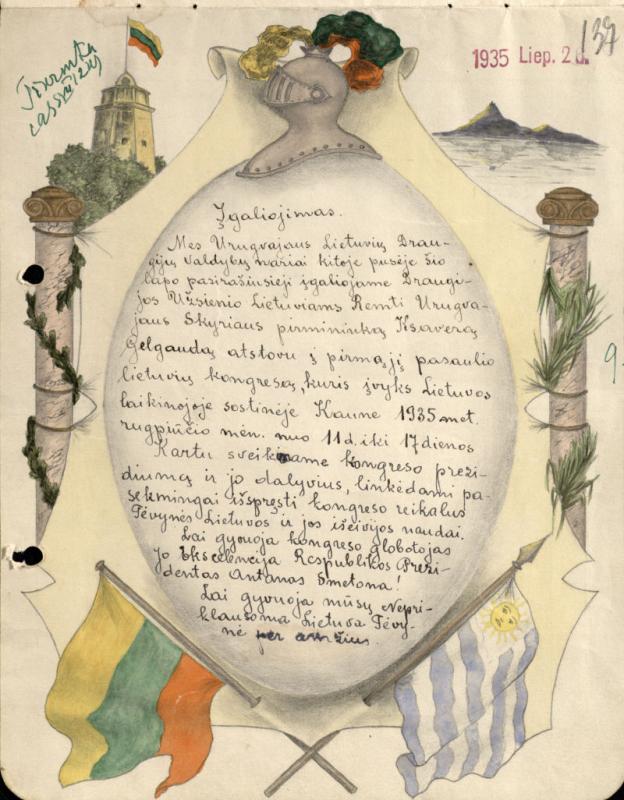 139
1935 Liep. 2 d.
Įgaliojimas.
Mes Urugvajaus Lietuvių Drau-
gijų valdybų nariai kitoje pusėje šio
lapo pasirašiusieji įgaliojame Draugi-
jos Užsienio Lietuviams Remti Urugva-
jaus Skyriaus pirmininką Ksaverą
Gelgaudą atstovu į pirmąjį pasaulio
lietuvių kongresą, kuris įvyks Lietuvos
laikinojoje sostinėje Kaune 1935 met.
rugpiučio mėn. nuo 11 d. iki 17 dienos
Kartu sveikiname kongreso prezi-
diumą ir jo dalyvius, linkėdami pa-
sekmingai išspręsti kongreso reikalus
Tėvynės Lietuvos ir jos išeivijos naudai.
Lai gyvuoja kongreso globotojas
Jo Ekscelencija Respublikos Prezi-
dentas Antanas Smetona!
Lai gyvuoja mūsų Nepri-
klausoma Lietuva Tėvy-
nė per amžius.